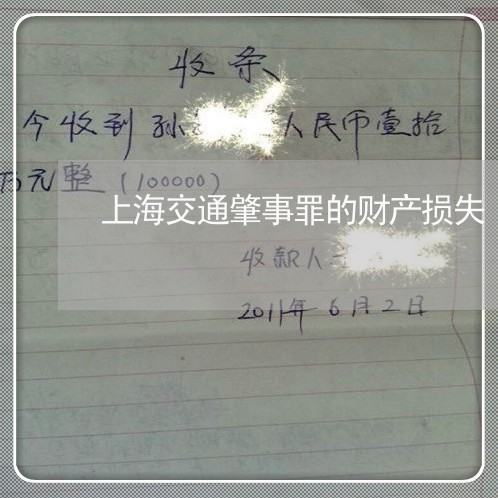 收条
今收到孙 人民币壹拾
万元整（100000）
上海交通肇事罪的财产损失
收款人
2011年6月2日